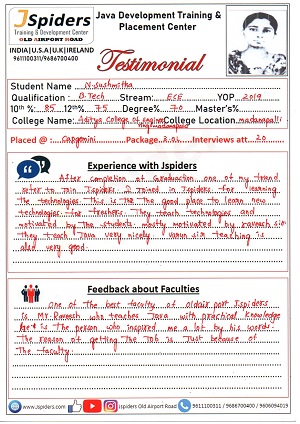 JSpiders
Training & Development Center
OLD AIRPORT ROAD
INDIA|U.S.A|U.K|IRELAND
9611100311/9686700400
Java Development Training &
Placement Center
Testimonial
Student Name N.Sushmitha
Qualification : B.Tech Stream: ECE YOP 2019
10th %: 85 12th% 75 Degree% 70 Master's%
College Name: Aditya College of College Location madanapalli
Placed @ : Capgemini Package Interviews att: 20
Experience with Jspiders
After completion of Graduation one of my friend
refer to Jspiders. I trained in Jspiders for learning
the technologies. This is the good place to learn new
technologies for freshers. They teach technologies and
motivated by students mostly motivated by ramesh sir
They teach Java very nicely sir teaching is
also very good.
Feedback about Faculties
One of the best faculty of oldair port Jspiders
is Mr. Ramesh who teaches Java with practical knowledge
is the person who inspired me a lot by his words.
The reason of getting the job is Just because of
The faculty.
www.jspiders.com Jspiders Old Airport Road 9611100311 / 9686700400 / 9606094019